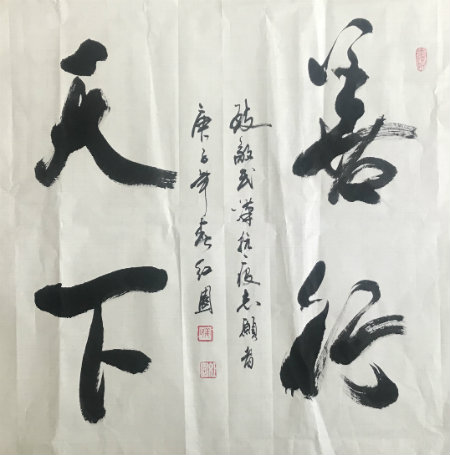 善行
致敬武漢抗疫志願者
庚子年春红
天下